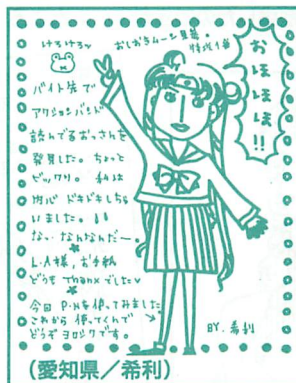 けろけろッ
おしおきムーン見参。
おほほほ!!
バイト先で
アクションバンド
読んでるおっさんを
発見した。ちょっと
ビックリ。私は
内心ドキドキしちゃ
いました。
なっなんなんだー。
L.A様,お手紙
どうも Thanx でした♥
今回 P.Nを使ってみました
これから使ってくんで
どうぞヨロシクです。
BY. 希利
(愛知県/希利)